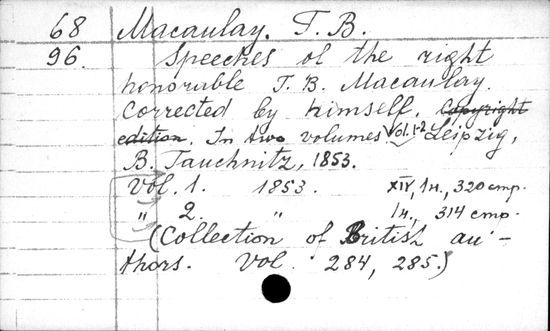 68 Macaulay, T. B.
96. Speeches of the right
honorable T. B. Macaulay.
Corrected by himself. Copyright
edition. In two volumes. Vol. 1-2 Leipzig,
B. Tauchnitz, 1853.
Vol. 1. 1853. XIV, 1н., 320 стр.
" 2. " 1н., 314 стр.
(Collection of British au-
thors. Vol. 284, 285.)